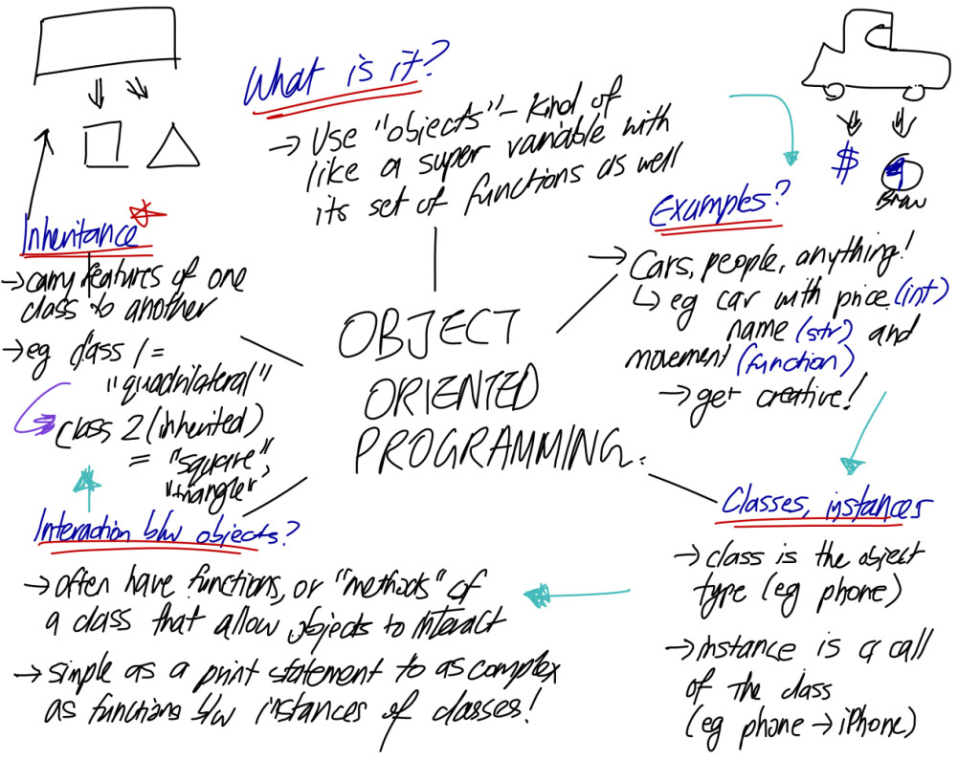 What is it?
→ Use "objects" - kind of
like a super variable with
its set of functions as well
Examples?
→ Cars, people, anything!
↳ eg car with price (int)
name (str) and
movement (function)
→ get creative!
$
Classes, instances
→ class is the object
type (eg phone)
→ instance is a call
of the class
(eg phone → iPhone)
Interaction b/w objects?
→ often have functions, or "methods" of
a class that allow objects to interact
→ simple as a print statement to as complex
as functions b/w instances of classes!
Inheritance
→ carry features of one
class to another
→ eg class 1 =
"quadrilateral"
class 2 (inherited)
= "square",
OBJECT
ORIENTED
PROGRAMMING.